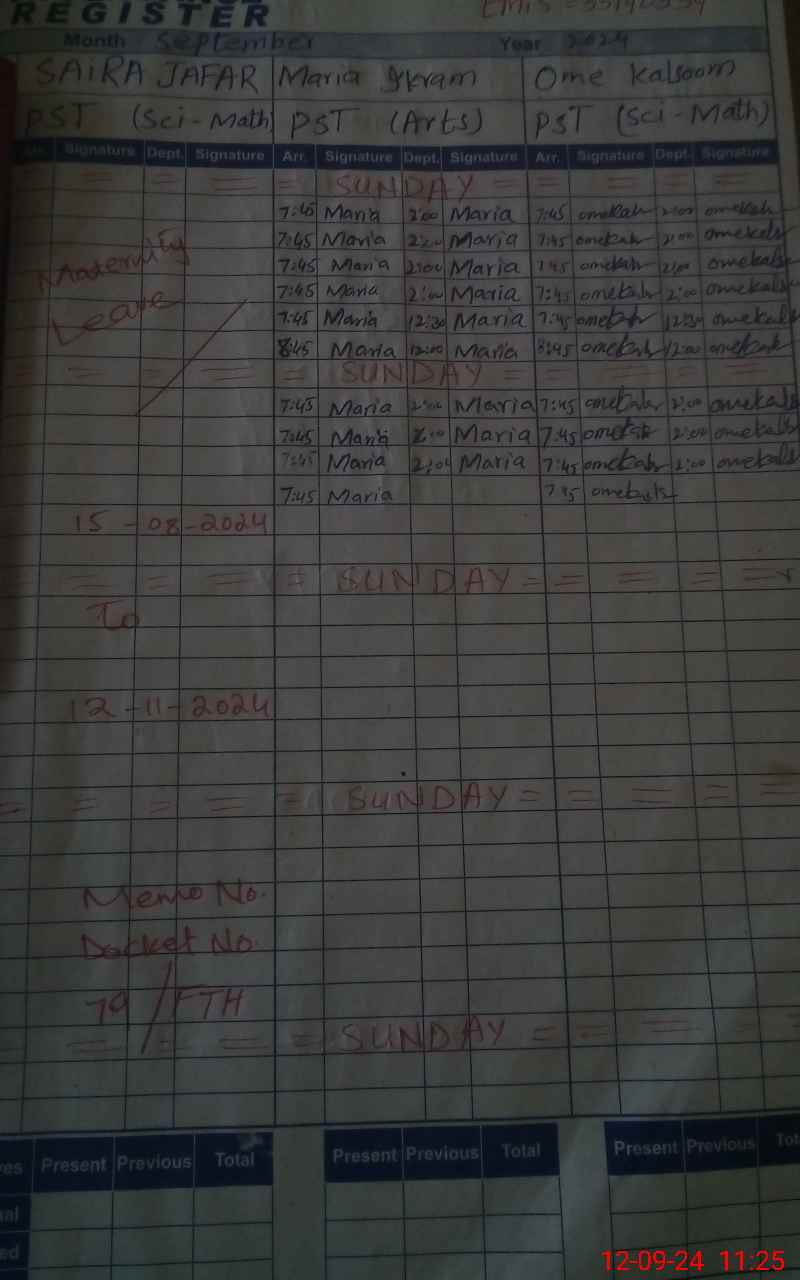 REGISTER
Month September Year 2024
SAIRA JAFAR Maria Ikram Ome Kalsoom
PST (Sci-Math) PST (Arts) PST (Sci-Math)
Arr. Signature Dept. Signature Arr. Signature Dept. Signature Arr. Signature Dept. Signature
= = = = = SUNDAY = = = = =
7:45 Maria 2:00 Maria 7:45 omekals 2:00 omekals
7:45 Maria 2:00 Maria 7:45 omekals 2:00 omekals
Maternity 7:45 Maria 2:00 Maria 7:45 omekals 2:00 omekals
7:45 Maria 2:00 Maria 7:45 omekals 2:00 omekals
Leave 7:45 Maria 12:30 Maria 7:45 omekals 12:30 omekals
8:45 Maria 12:00 Maria 8:45 omekals 12:00 omekals
= = = = = SUNDAY = = = = =
7:45 Maria 2:00 Maria 7:45 omekals 2:00 omekals
7:45 Maria 2:00 Maria 7:45 omekals 2:00 omekals
7:45 Maria 2:00 Maria 7:45 omekals 2:00 omekals
7:45 Maria 7:45 omekals
15-08-2024
= = = = SUNDAY = = = = =
To
12-11-2024
= = = = = SUNDAY = = = = =
Memo No.
Docket No.
79/FTH
= = = = SUNDAY = = = = =
Present Previous Total Present Previous Total Present Previous
12-09-24 11:25